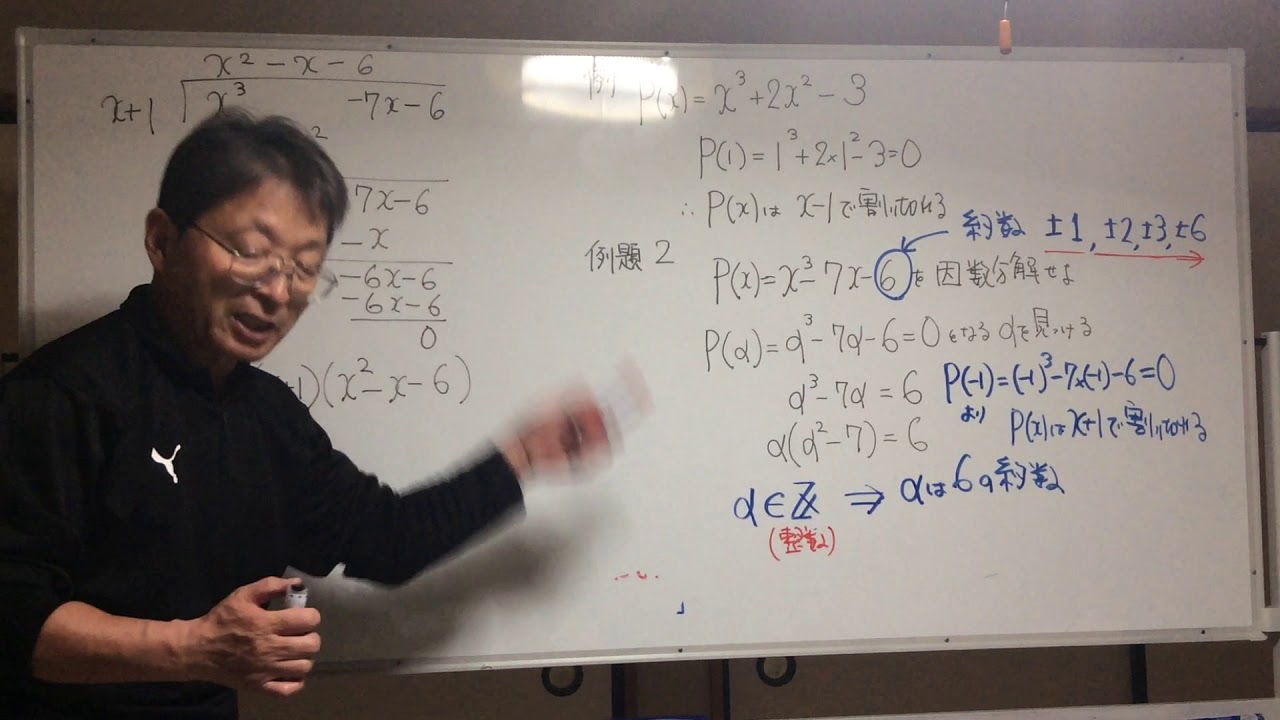 x² - x - 6
x+1 x³ -7x-6
2
7x-6
-x
-6x-6
-6x-6
0
+1)(x²-x-6)
例 P(x)=x³+2x²-3
P(1)=1³+2×1²-3=0
∴ P(x)は x-1で割り切れる
約数 ±1, ±2, ±3, ±6
例題2
P(x)=x³-7x-6を因数分解せよ
P(α)=α³-7α-6=0となるαを見つける
α³-7α=6
α(α²-7)=6
P(-1)=(-1)³-7×(-1)-6=0
より P(x)はx+1で割り切れる
α∈ℤ ⇒ αは6の約数
(整数)